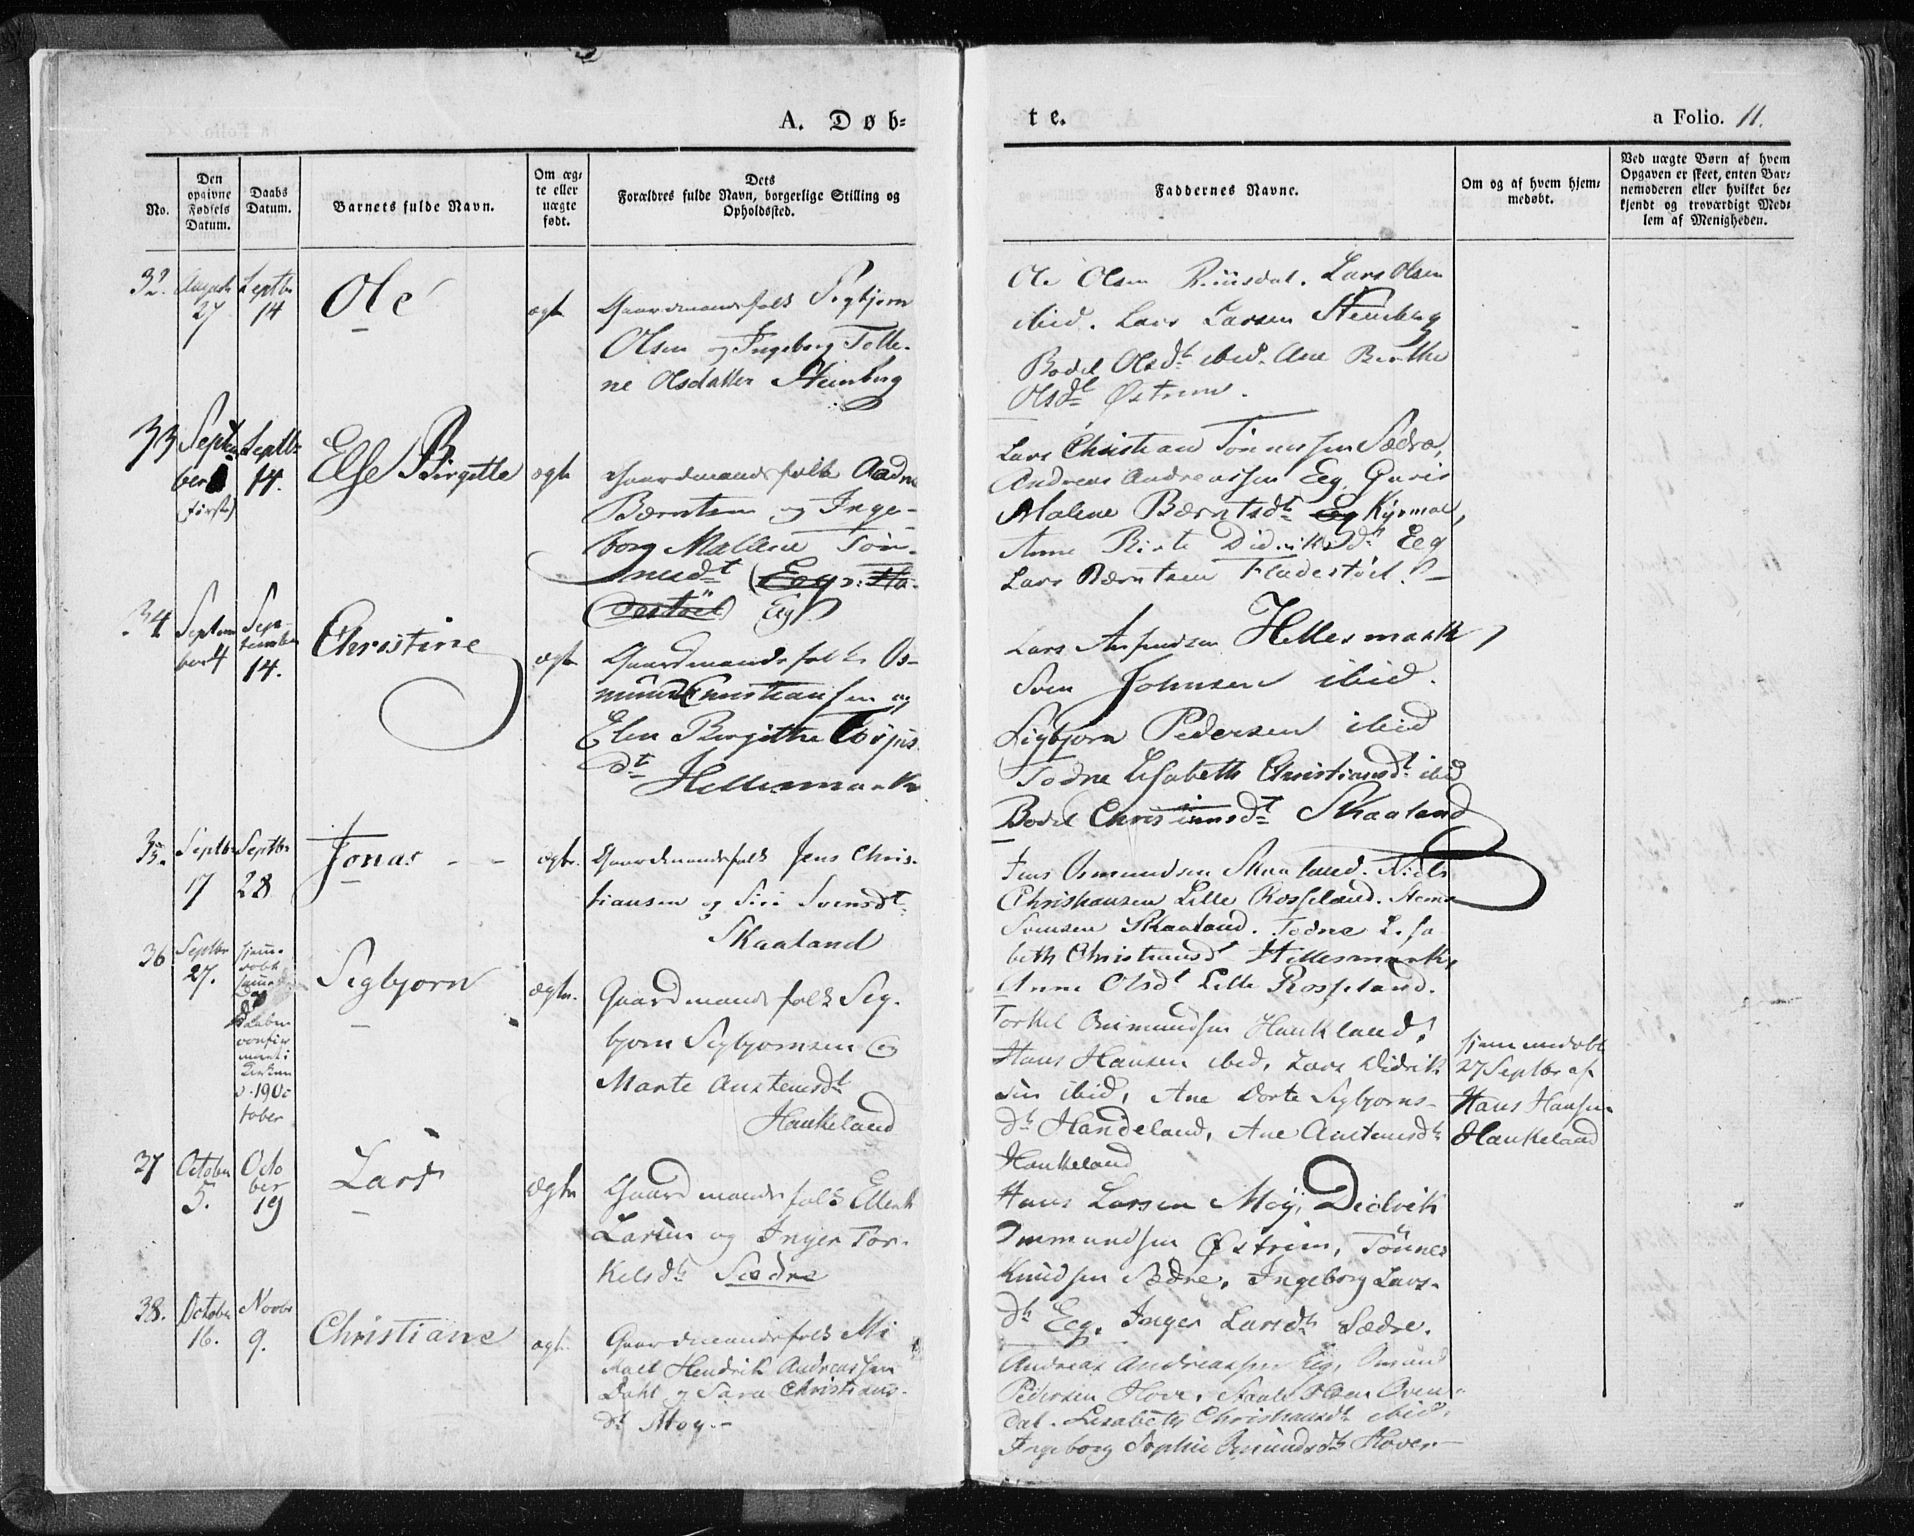 A. Døb-
te.
a Folio. 11.
No.
Den opgivne Fødsels Datum.
Daabs Datum.
Barnets fulde Navn.
Om æg-
te eller
uægte
født.
Dets
Forældres fulde Navn, borgerlige Stilling og
Opholdssted.
Faddernes Navne.
Om og af hvem hjem-
medøbt.
Ved uægte Børn af hvem
Opgaven er skeet, enten Bar-
nemoderen eller hvilket be-
kjendt og troværdigt Med-
lem af Menigheden.
32.
August
27
Septbr
14
Ole
ægte
Gaardmandsfolk Sigbjørn
Olsen og Ingeborg Tolle-
ne Olsdatter Steinberg
Ole Olsen Ruusdal. Lars Olsen
ibid. Lars Larsen Steinberg
Bodel Olsdt ibid. Ane Berthe
Olsdt Østrem.
33
Septem
ber 1
(første)
Septbr
14.
Else Birgitte
ægte
Gaardmandsfolk Aadne
Bærntsen og Inge-
borg Mallene Tön-
nesdt
Eeg
Lars Christian Tönnessen Sædre,
Andreas Andreassen Eeg, Guris
Malene Bærntsdt Eeg
Anne Birte Didriksdt Eeg
Lars Bærntsen Fladestöel.
34
Septem
ber 4
Sep-
tember
14.
Christine
ægte
Gaardmandsfolk Os-
mund Christiansen og
Elen Birgithe
dt
Hellesmark
Lars Hellesmark,
Sven Johnsen ibid.
Sigbjørn Pedersen ibid
Todne Lisabeth Christiansdt ibid
Bodel Christiansdt Skaaland
35.
Septbr
17
Septbr
28
Jonas - -
ægte.
Gaardmandsfolk Jens Chris-
tiansen og Siri Svensdt
Skaaland
Jens Osmundsen Skaaland. Niels
Christiansen Lille Rosseland.
Svensen Skaaland. Todne Lisa
beth Christiansdt Hellesmark,
Anne Olsdt Lille Rosseland.
36
Septbr
27.
hjem-
døbt
samme
Dag
Daaben
confir
meret i
Kirken
d. 19 Oc
tober
Sigbjørn
ægte.
Gaardmandsfolk Sig-
bjørn Sigbjørnsen og
Marte Austensdt
Haukeland
Torkel Osmundsen Haukland,
Hans Hansen ibid, Lars Didrik
sen ibid, Ane Dorte Sigbjørns-
dt Handeland, Ane Austensdt
Haukeland
hjemmedøbt
27 Septbr af
Hans Hansen
Haukeland
37
October
5.
Octo
ber
19
Lars
ægte
Gaardmandsfolk Ellert
Larsen og Inger Tor-
kelsdt Sædre
Hans Larsen Moy, Didrik
Ommundsen Østrem, Tönnes
Knudsen Sædre, Ingeborg Lars-
dt Eeg, Inger Larsdt Sædre.
38.
October
16.
Novbr
9.
Christiane
ægte
Gaardmandsfolk Mi
kael Hendrik Andreassen
Dahl og Sara Christians-
dt Moy.-
Andreas Andreassen Eeg, Omund
Pedersen Hove, Staale Olsen Oven-
dal. Lisabeth Christiansdt ibid,
Ingeborg Sophie Omundsdt Hove.